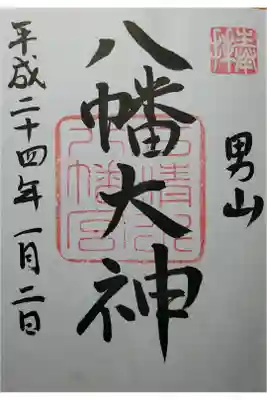 奉拝
男山
八幡大神
石清水八幡宮
平成二十四年一月二日